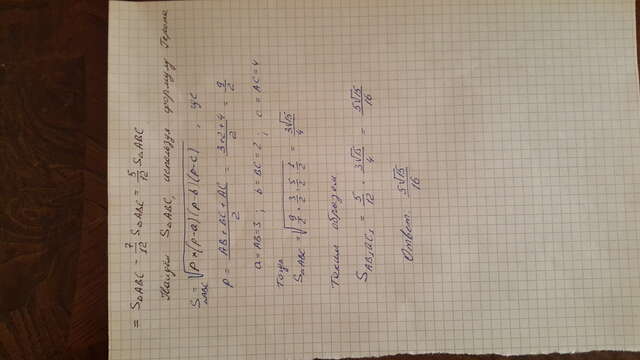 = S△ABC - 7/12 S△ABC = 5/12 S△ABC
Найдём S△ABC, используя формулу Герона
S△ABC = √p×(p-a)(p-b)(p-c) , где
p = AB+BC+AC/2 = 3+2+4/2 = 9/2
a=AB=3 ; b=BC=2 ; c=AC=4
Тогда
S△ABC = √9/2·3/2·5/2·1/2 = 3√15/4
Таким образом
= 5/12 · 3√15/4 = 5√15/16
Ответ. 5√15/16